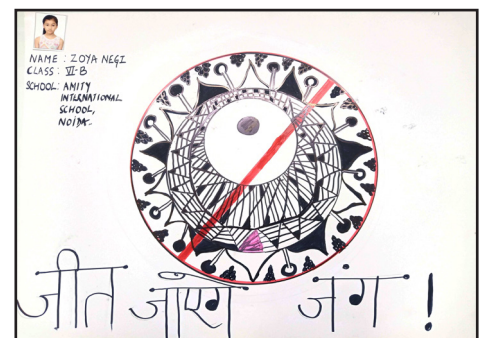 NAME : ZOYA NEGI
CLASS : VI-B
SCHOOL: AMITY
INTERNATIONAL
SCHOOL,
NOIDA.
जीत जाएंगे जंग !